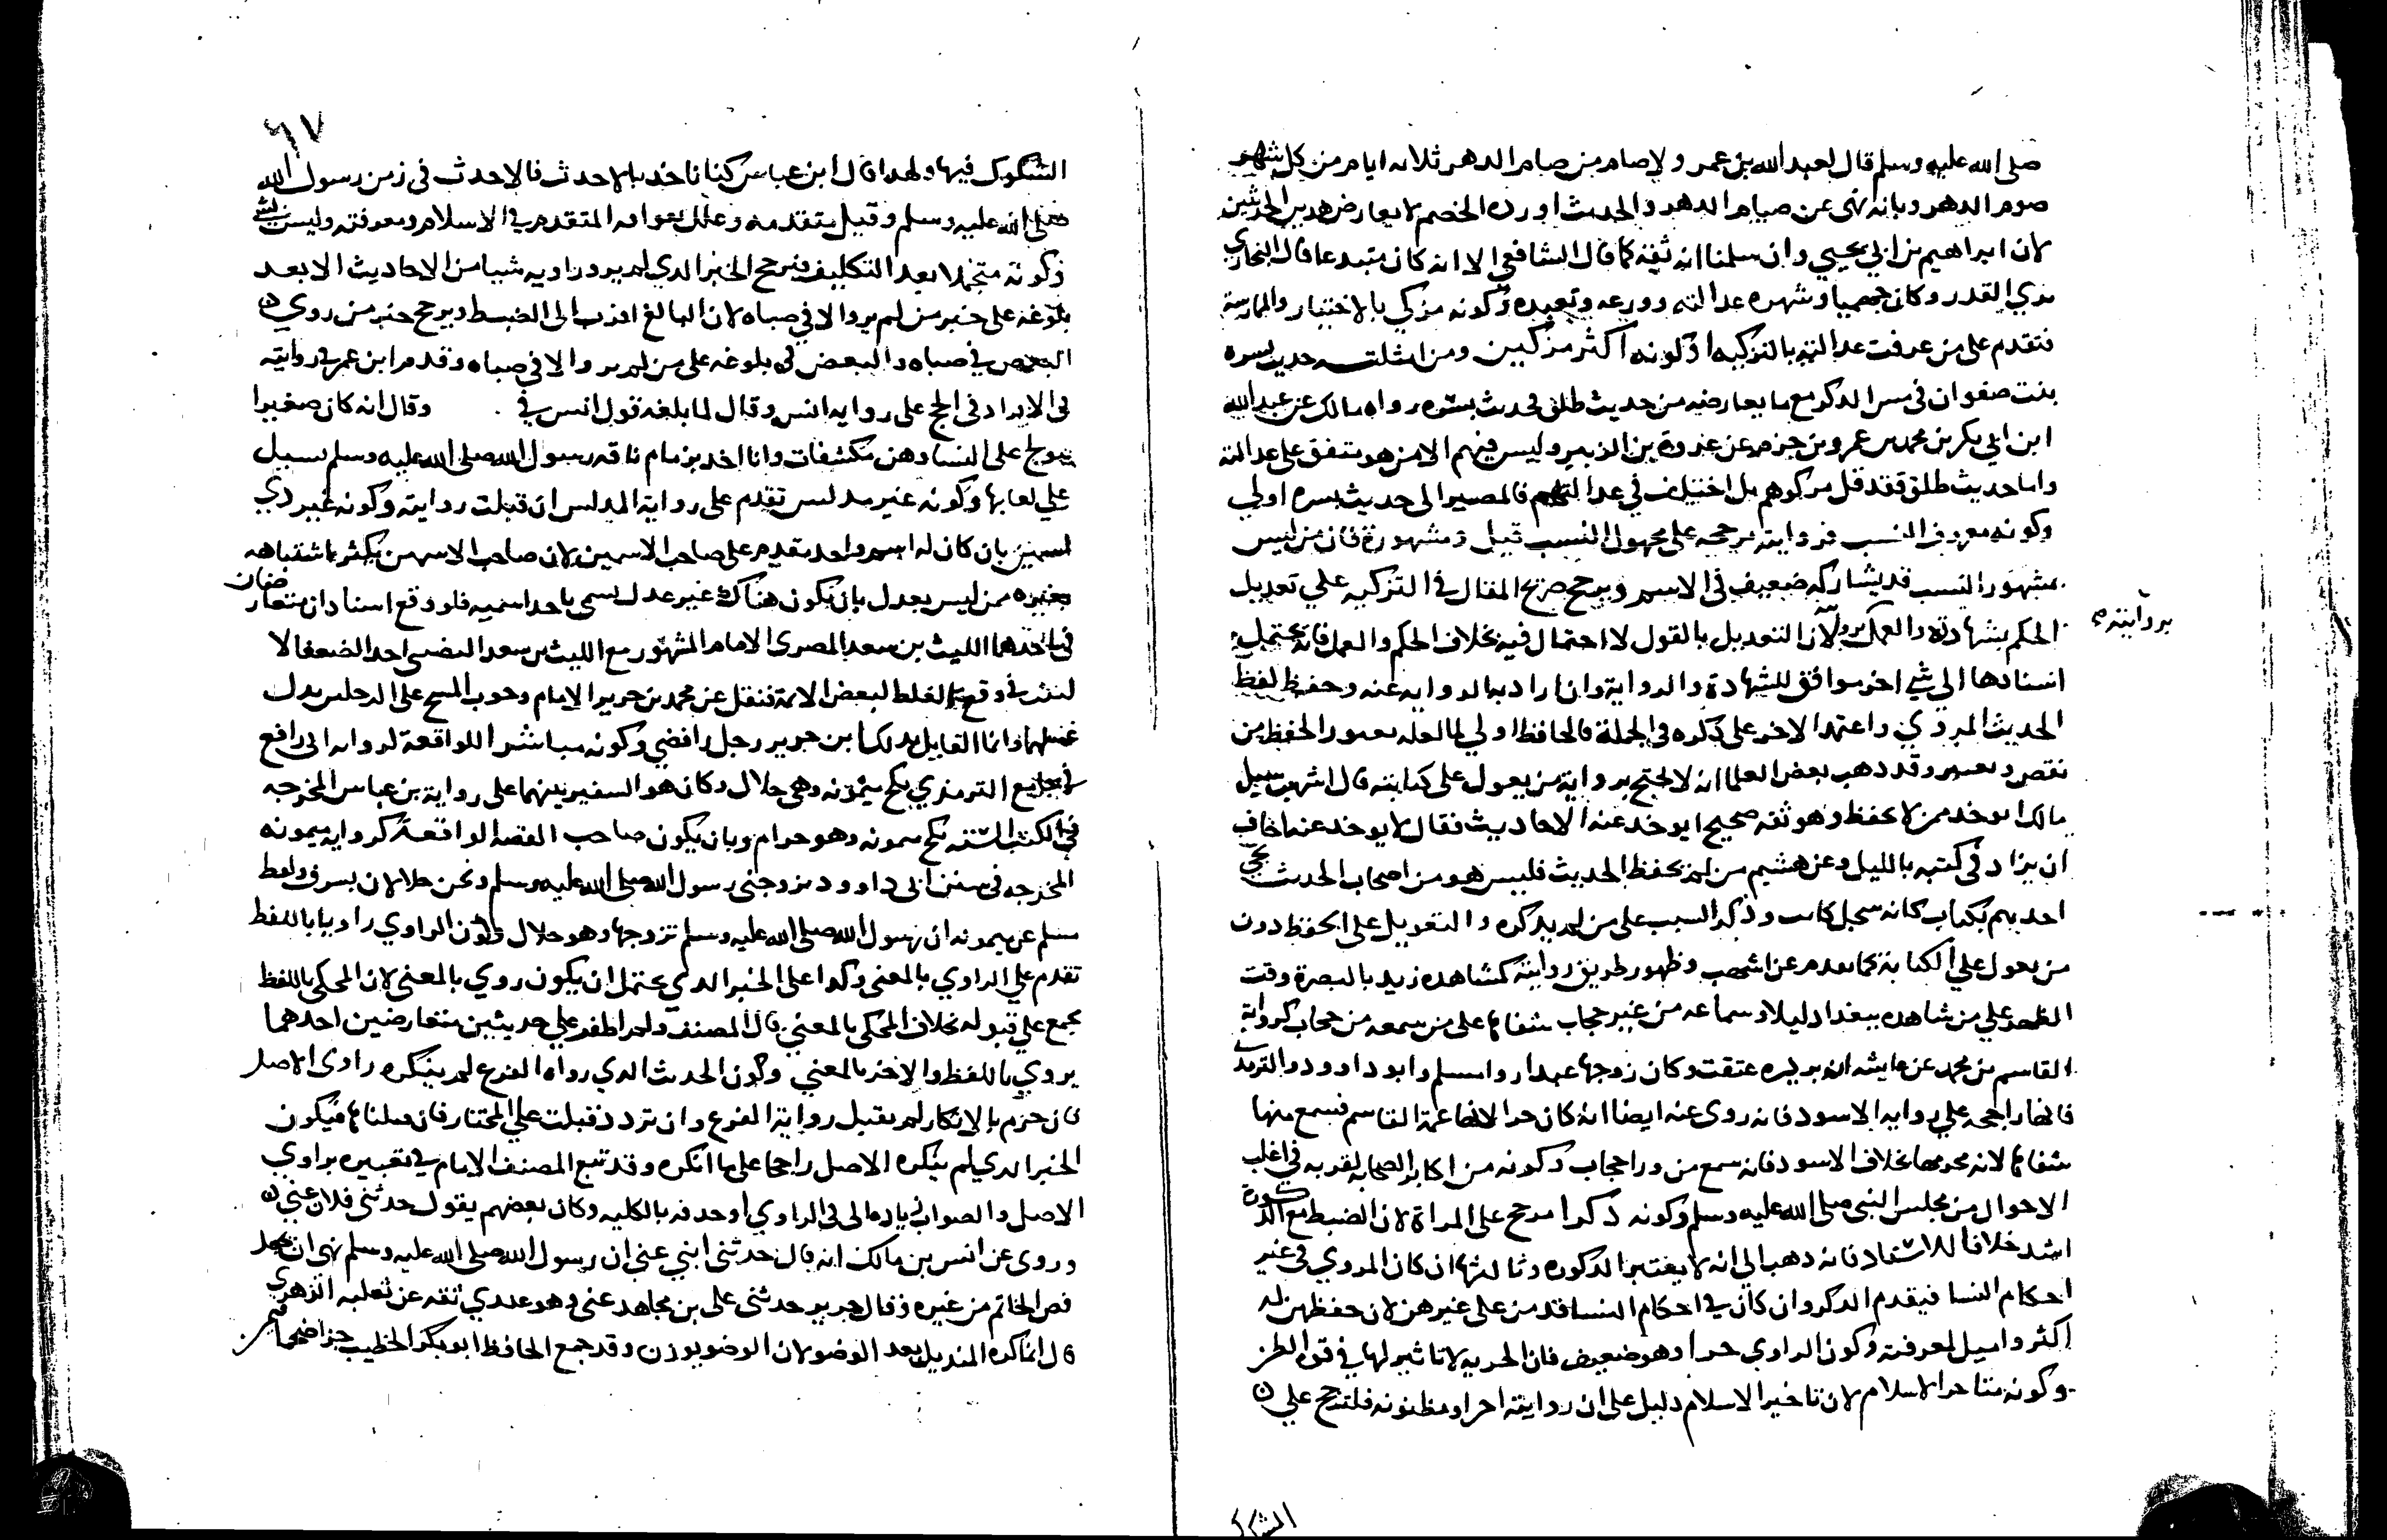 صلى الله عليه وسلم قال لعبد الله بن عمر ولا صام من صام الدهر ثلاثه ايام من كل شهر
صوم الدهر وبانه نهى عن صيام الدهر والحديث اورده الخصم لا يعارض هدين الحديثين
لان ابراهيم بن ابي يحيي وان سلمنا انه ثقة كما قال الشافعي الا انه كان مبتدعا قال البخاري
يري القدر وكان جهميا وشهره عدالته وورعه وتعبده وكونه مزكي بالاختبار والممارسة
فتقدم على من عرفت عدالته بالتزكيه او كونه اكثر مزكين ومن امثلته حديث بسره
بنت صفوان في مس الدكر مع ما يعارضه من حديث طلق فحديث بسره رواه مالك عن عبد الله
ابن ابي بكر بن محمد بن عمرو بن حزم عن عروة بن الزبير وليس فيهم الا من هو متفق على عدالته
واما حديث طلق فقد قل مزكوهم بل اختلف في عدالتهم فالمصير الى حديث بسره اولي
وكونه معروف النسب فروايته مرجحه على مجهول النسب قيل ومشهوره فان من ليس
مشهور النسب قد يشاركه ضعيف في الاسم ويرجح صريح المقال في التزكيه علي تعديل
الحكم بشهادته والعمل لان التعديل بالقول لا احتمال فيه بخلاف الحكم والعمل فانه يحتمل
بروايته صح
استنادهما الى شي اخر موافق للشهادة والرواية وان اراد به الروايه عنه وحفظ لفظ
الحديث المروي واعتمد الاخر على ذكره في الجملة فالحافظ اولي
نقص وقد دهب بعض العلما انه لا يحتج برواية من يعول على كتابته قال اشهب سيل
مالك ايوخد ممن لا يحفظ وهو ثقه صحيح ايوخد عنه الاحاديث فقال لا يوخد عنه اخاف
ان يزاد في كتبه بالليل وعن هشيم من لم يحفظ الحديث فليس هو من اصحاب الحديث يجي
احدهم بكتاب كانه سجل كاتب وذكر السبب على من لم يدكره والتعويل على الحفظ دون
من يعول علي الكتابة كما تقدم عن اشهب وظهور طريق روايته كمشاهده زيد بالبصرة وقت
الظهر علي من شاهده ببغداد ليلا وسماعه من غير حجاب شفاها على من سمعه من حجاب كرواية
القاسم بن محمد عن عايشه ان بريره عتقت وكان زوجها عبدا رواه مسلم وابو داوود والترمدي
فانها راجحه علي روايه الاسود فانه روى عنه ايضا انه كان حرا لانها عمة القاسم فسمع منها
شفاها لانه محرمها بخلاف الاسود فانه سمع من ورا حجاب وكونه من اكابر الصحابه لقربه في اغلب
الاحوال من مجلس النبي صلى الله عليه وسلم وكونه ذكرا مرجح على المراة لان الضبط مع الدكورة
اشد خلافا للاستاد فانه دهب الى انه لا يعتبر الدكوره وثالثها ان كان المروي في غير
احكام النسا فيقدم الدكر وان كان في احكام النسا قدمن على غيرهن لان حفظهن له
اكثر واميل لمعرفته وكون الراوي حرا وهو ضعيف فان الحريه لا تاثير لها في قوة الظن
وكونه متاخر الاسلام لان تاخير الاسلام دليل على ان روايته اخرا ومظنونه فلترجح علي
المشكوك
٦٧
الشكوك فيها ولهدا قال ابن عباس كنا ناخد بالاحدث فالاحدث في زمن رسول الله
صلى الله عليه وسلم وقيل متقدمه وعلل بعراقه المتقدم في الاسلام ومعرفته وليس بشي
وكونه متحملا بعد التكليف فيرجح الخبر الدي لم يرو راويه شييا من الاحاديث الا بعد
بلوغه على خبر من لم يرو الا في صباه لان البالغ اقرب الى الضبط ويرجح خبر من روي
البعض في صباه والبعض في بلوغه على من لم يرو الا في صباه وقدم ابن عمر في روايته
في الافراد في الحج على روايه انس وقال لما بلغه قول انس في وقال انه كان صغيرا
يتولج على النسا وهن متكشفات وانا اخد بزمام ناقه رسول الله صلى الله عليه وسلم يسيل
علي لعابها وكونه غير مدلس تقدم على رواية المدلس ان قبلت روايته وكونه غير ذي
اسمين بان كان له اسم واحد يقدم على صاحب الاسمين لان صاحب الاسمين يكثر اشتباهه
بغيره ممن ليس بعدل بان يكون هناك غير عدل يسمى باحد اسميه فلو وقع اسنادان متعارضان
في احدهما الليث بن سعد المصري الامام المشهور مع الليث بن سعد احد الضعفا لا
وقع الغلط لبعض الايمة فنقل عن محمد بن جرير الامام وجوب المسح على الرجلين بدل
غسلهما وانما القايل بدلك ابن جرير رجل رافضي وكونه مباشرا للواقعة لروايه ابي رافع
في جامع الترمذي نكح ميمونه وهو حلال وكان هو السفير بينهما على رواية بن عباس المخرجه
في الكتب الستة نكح ميمونه وهو حرام وبان يكون صاحب القصه الواقعة كروايه ميمونه
المخرجه في سنن ابى داوود تزوجني رسول الله صلى الله عليه وسلم ونحن حلالان بسرف ولفظ
مسلم عن ميمونه ان رسول الله صلى الله عليه وسلم تزوجها وهو حلال وكون الراوي راويا باللفظ
تقدم علي الراوي بالمعنى وكدا على الخبر الدي يحتمل ان يكون روي بالمعنى لان المحكي باللفظ
مجمع على قبوله بخلاف المحكي بالمعنى قال المصنف ولم اظفر علي حديثين متعارضين احدهما
يروي باللفظ والاخر بالمعني وكون الحديث الدي رواه الفرع لم ينكره راوى الاصل
فان جزم بالانكار لم تقبل رواية الفرع وان تردد قبلت علي المختار فان قبلناها فيكون
الخبر الدي لم ينكره الاصل راجحا على ما انكره وقد تبع المصنف الامام في تعبيره براوي
الاصل والصواب زياده الى في الراوي او حدفه بالكليه وكان بعضهم يقول حدثني فلان عني
وروى عن انس بن مالك انه قال حدثني ابني عني ان رسول الله صلى الله عليه وسلم نهى ان يجعل
فص الخاتم من غيره وقال جرير حدثني علي بن مجاهد عني وهو عندي ثقه عن ثعلبه الزهري
قال انما كره المنديل بعد الوضو لان الوضو يوزن وقد جمع الحافظ ابو بكر الخطيب جزا ضخما فيمن